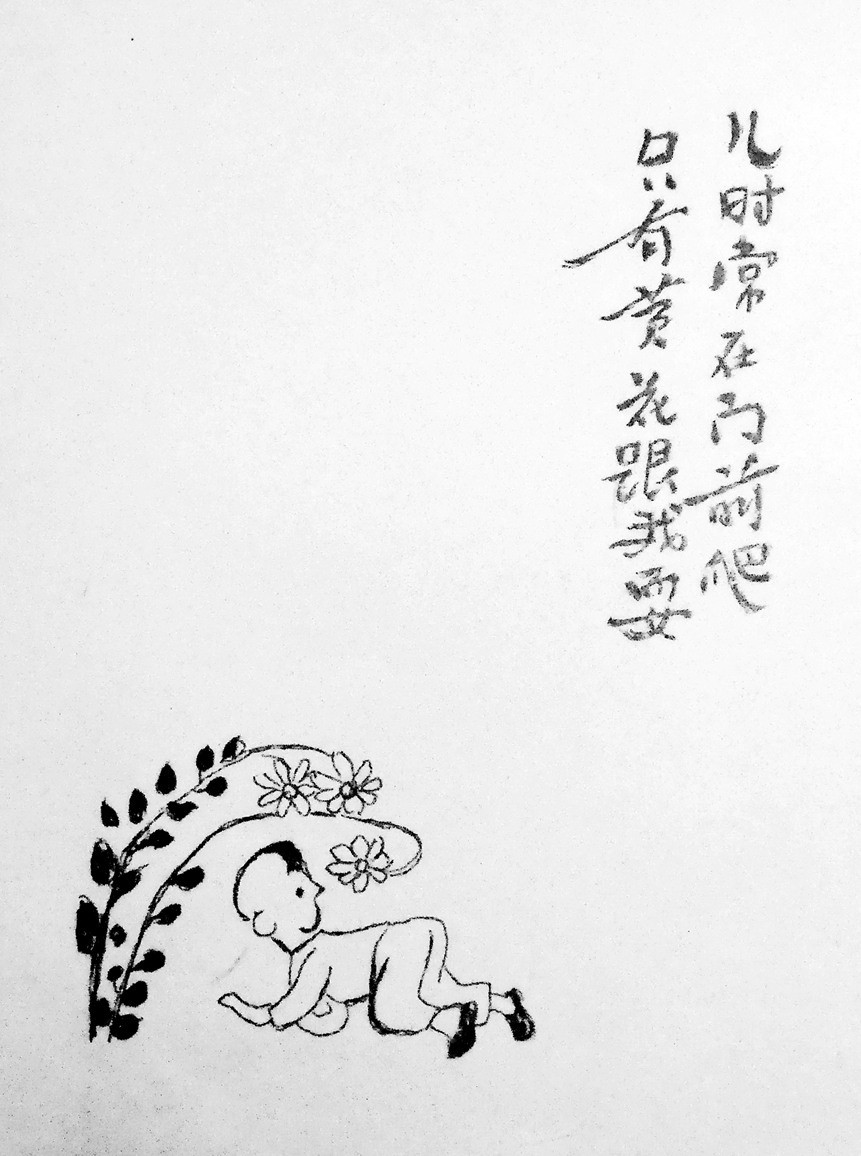 儿时常在门前爬
只有黄花跟我耍